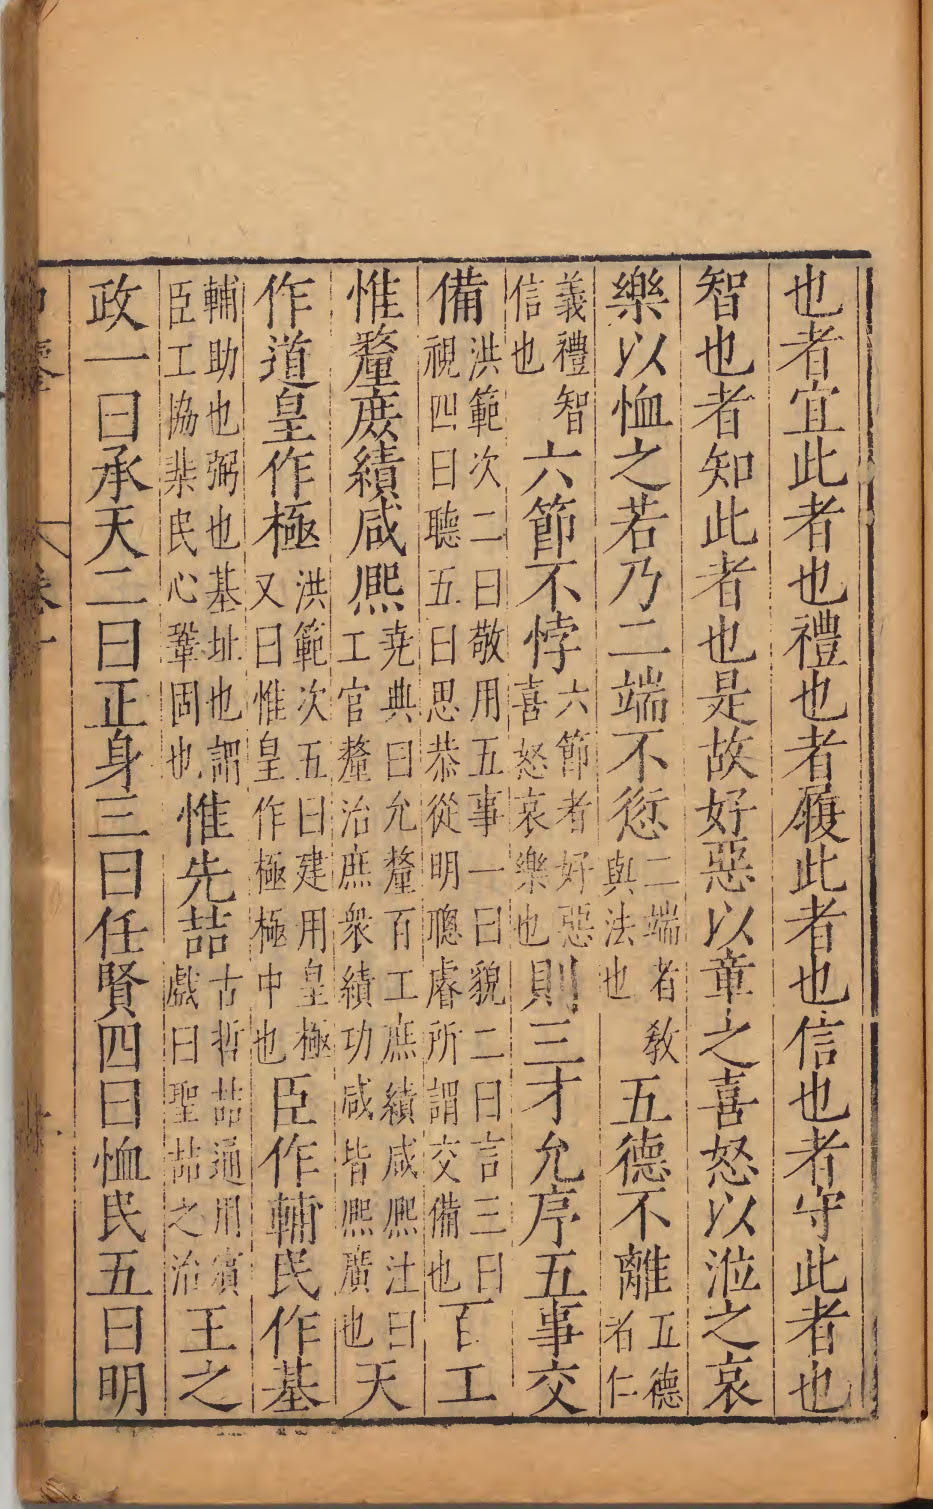 也者宜此者也禮也者履此者也信也者守此者也
智也者知此者也是故好惡以章之喜怒以涖之哀
樂以恤之若乃二端不愆二端者教與法也五德不離五德者仁
義禮智信也六節不悖六節者好惡喜怒哀樂也則三才允序五事交
備洪範次二曰敬用五事一曰貌二曰言三曰視四曰聽五曰思恭從明聰睿所謂交備也百工
惟釐庶績咸熈堯典曰允釐百工庶績咸熈注曰工官釐治庶衆績功咸皆熈廣也天
作道皇作極洪範次五曰建用皇極又曰惟皇作極極中也臣作輔民作基
輔助也弼也基址也謂臣工協棐民心鞏固也惟先喆古哲喆通用賓戲曰聖喆之治王之
政一曰承天二曰正身三曰任賢四曰恤民五曰明
卷一